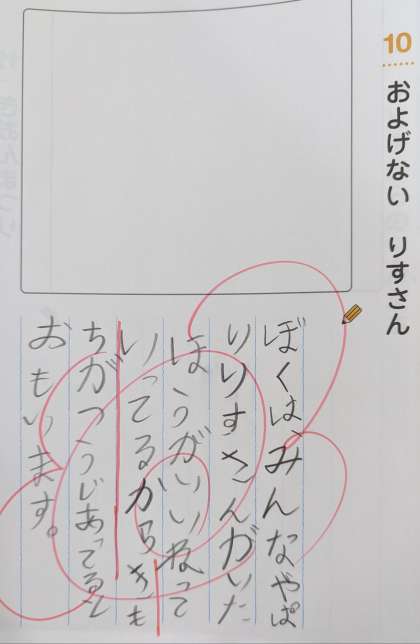 10
およげない りすさん
ぼくは、みんなやぱ
りりすさんがいた
ほうがいいねって
いってるからきも
ちがつうじあってると
おもいます。